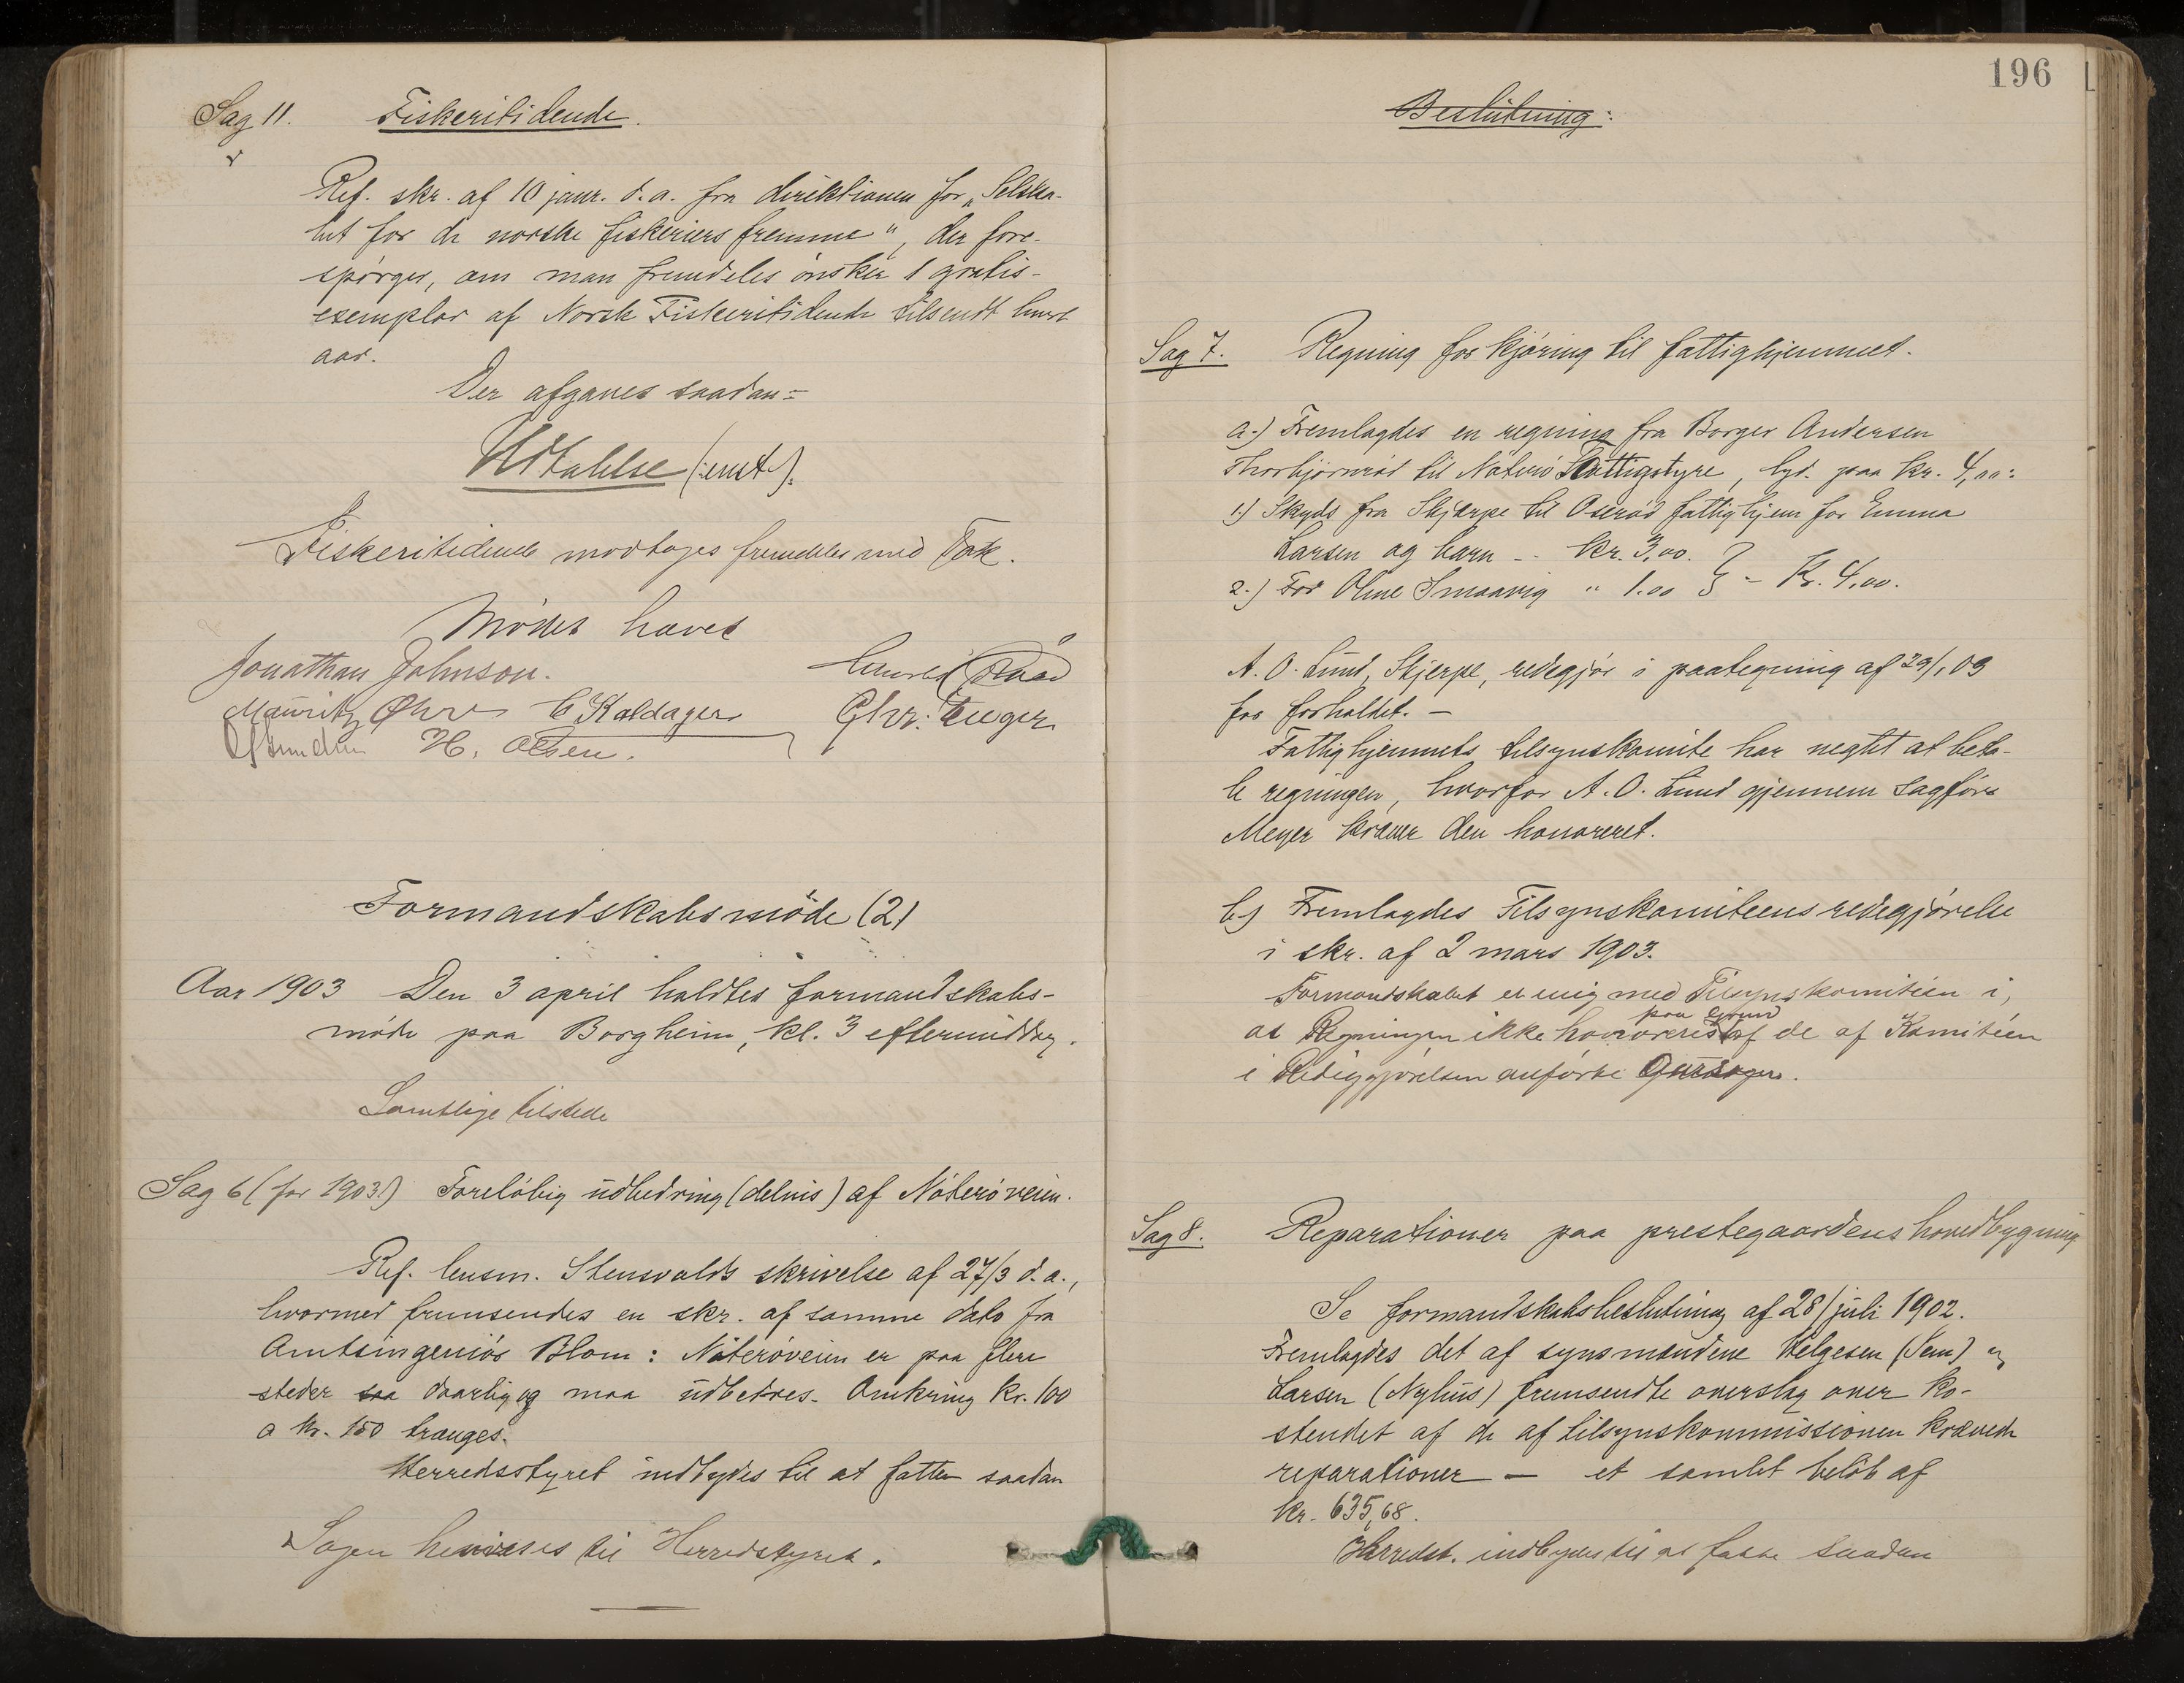 Sag 11. Fiskeritidende.
Ref. skr. af 10 janr. d. a. fra direktionen for „Selska-
bet for de norske fiskeriers fremme“, der fore-
spørger, om man fremdeles ønsker 1 gratis-
exemplar af Norsk Fiskeritidende tilsendt hvert
aar.
Der afgaves saadan:
Udtalelse (:emt:).
Fiskeritidende modtages fremdeles med Tak.
Mødet hævet
Jonathan Johnson.
Mauritz Øhre C Kaldager Chr:
H. Olsen.
Formandskabsmøde (2)
Aar 1903 Den 3 april holdtes formandskabs-
møde paa Borgheim, kl. 3 eftermiddag.
Samtlige tilstede
Sag 6 (for 1903.) Foreløbig udbedring (delvis) af Nøterøveien.
Ref. lensm. Stensvolds skrivelse af 27/3 d. a.,
hvormed fremsendes en skr. af samme dato fra
Amtsingeniør Blom: Nøterøveien er paa flere
steder saa daarlig og maa udbedres. Omkring kr. 100
a kr. 150 trænges.
Herredsstyret indbydes til at fatte saadan
Sagen henvises til Herredstyret.
196
Beslutning:
Sag 7. Regning for kjøring til fattighjemmet.
a.) Fremlagdes en regning fra Borger Andersen
Thorbjørnrød til Nøterø Fattigstyre, lyd. paa kr. 4,00:
1.) Skyds fra Skjerpe til Oserød fattighjem for Emma
Larsen og barn -- kr. 3,00.
2.) For Oline Smaavig " 1.00 } - Kr. 4,00.
A. O. Lund, Skjerpe, redegjør i paategning af 29/1 03
for forholdet. —
Fattighjemmets tilsynskomite har negtet at beta-
le regningen, hvorfor A. O. Lund gjennem sagfører
Meyer kræver den honoreret.
b.) Fremlagdes Tilsynskomiteens redegjørelse
i skr. af 2 mars 1903.
Formandskabet er enig med Tilsynskomitéen i,
paa Grund
at Regningen ikke honoreres af de af Komitéen
i Redegjørelsen anførte Grunde.
Sag 8. Reparationer paa prestegaardens hovedbygning
Se formandskabsbeslutning af 28/juli 1902.
Fremlagdes det af synsmændene Helgesen (Sem) og
Larsen (Nylius) fremsendte overslag over ko-
stendet af de af tilsynskommissionen krævede
reparationer — et samlet beløb af
kr. 635,68.
Herredst. indbydes til at fatte saadan